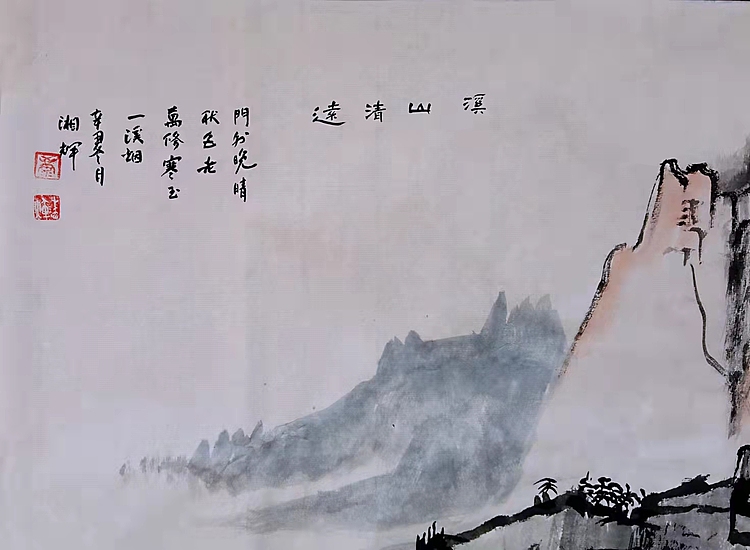 溪山清遠
門外晚晴
秋色老
萬條寒玉
一溪烟
辛丑冬月
湘輝